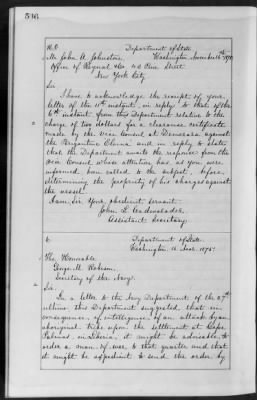 536
Department of State
Mr. John A. Johnston, Washington November 16th 1875
Office of 40 Pine Street
New York City
Sir
I have to acknowledge the receipt of your
letter of the 11th instant, in reply to that of the
6th instant, from this Department relative to the
charge of two dollars for a clearance certificate
made by the Vice Consul at Demerara against
the Brigantine and in reply to state
that the Department awaits the response from the
Vice Consul whose attention has, as you were
informed, been called to the subject, before
determining the propriety of his charges against
the vessel.
I am, Sir, Your obedient servant
John L. Cadwalader
Assistant Secretary
Department of State
Washington 16 Nov. 1875
The Honorable
George M. Robeson,
Secretary of the Navy.
Sir:
In a letter to the Navy Department of the 27th
ultimo, this Department suggested that in
consequence of intelligence of an attack by an
aboriginal tribe upon the settlement at Cape
Palmas, in Liberia, it might be advisable to
order a man of war to that quarter and that
it might be expedient to send the order by